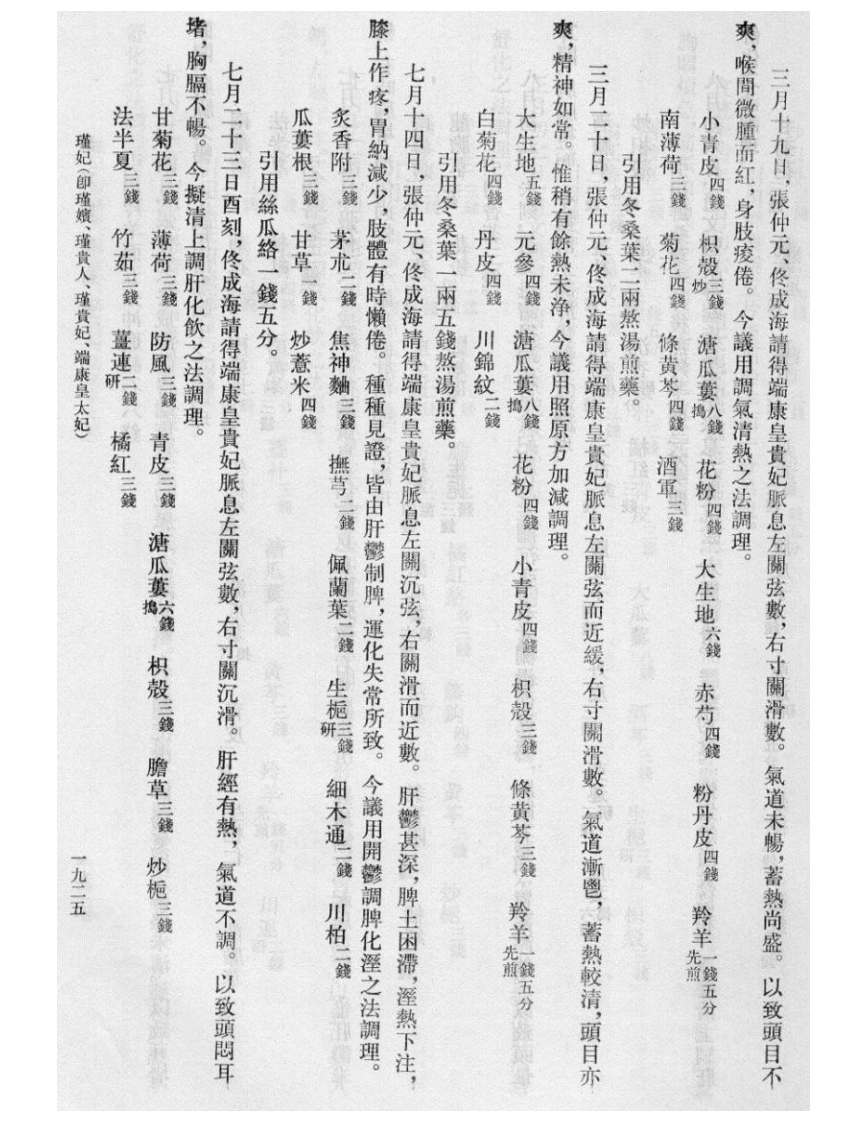 三月十九日，張仲元、佟成海請得端康皇貴妃脈息左關弦數，右寸關滑數。氣道未暢，蓄熱尚盛。以致頭目不
爽，喉間微腫而紅，身肢痠倦。今議用調氣清熱之法調理。
小青皮四錢 枳殼三錢炒 溏瓜蔞八錢搗 花粉四錢 大生地六錢 赤芍四錢 粉丹皮四錢 羚羊一錢五分先煎
南薄荷三錢 菊花四錢 條黃芩四錢 酒軍三錢
引用冬桑葉二兩熬湯煎藥。
三月二十日，張仲元、佟成海請得端康皇貴妃脈息左關弦而近緩，右寸關滑數。氣道漸鬯，蓄熱較清，頭目亦
爽，精神如常。惟稍有餘熱未净，今議用照原方加減調理。
大生地五錢 元參四錢 溏瓜蔞八錢搗 花粉四錢 小青皮四錢 枳殼三錢 條黃芩三錢 羚羊一錢五分先煎
白菊花四錢 丹皮四錢 川錦紋二錢
引用冬桑葉一兩五錢熬湯煎藥。
七月十四日，張仲元、佟成海請得端康皇貴妃脈息左關沉弦，右關滑而近數。肝鬱甚深，脾土困滯，溼熱下注，
膝上作疼，胃納減少，肢體有時懶倦。種種見證，皆由肝鬱制脾，運化失常所致。今議用開鬱調脾化溼之法調理。
炙香附三錢 茅朮二錢 焦神麯三錢 撫芎二錢 佩蘭葉二錢 生梔三錢研 細木通二錢 川柏二錢
瓜蔞根三錢 甘草一錢 炒薏米四錢
引用絲瓜絡一錢五分。
七月二十三日酉刻，佟成海請得端康皇貴妃脈息左關弦數，右寸關沉滑。肝經有熱，氣道不調。以致頭悶耳
堵，胸膈不暢。今擬清上調肝化飲之法調理。
甘菊花三錢 薄荷三錢 防風三錢 青皮三錢 溏瓜蔞六錢搗 枳殼三錢 膽草三錢 炒梔三錢
法半夏三錢 竹茹三錢 薑連二錢研 橘紅三錢
瑾妃（卽瑾嬪、瑾貴人、瑾貴妃、端康皇太妃）
一九二五